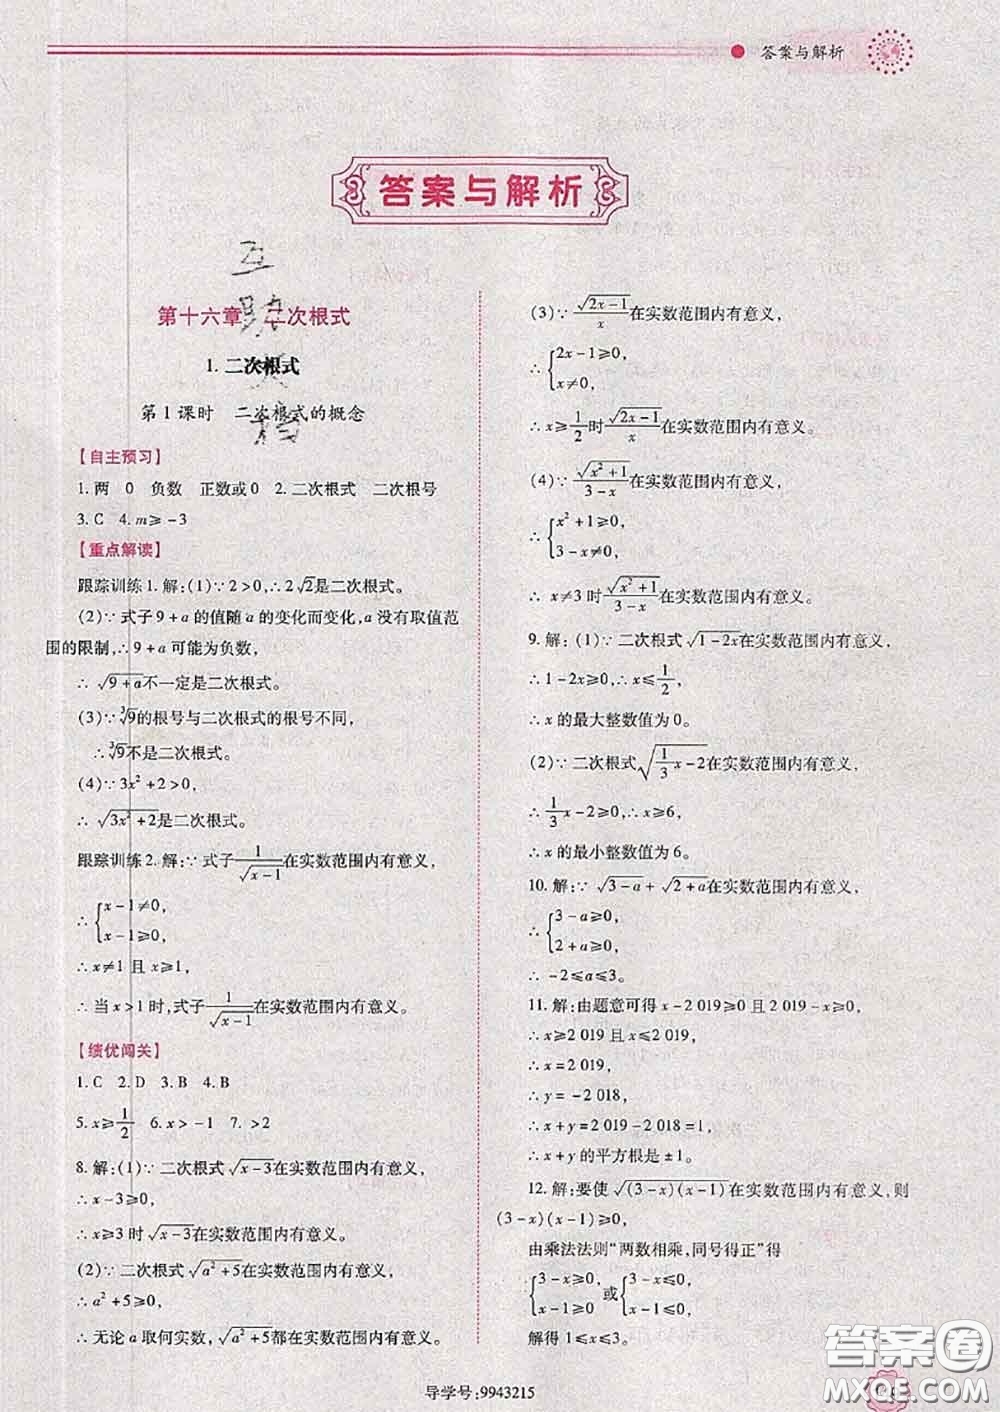 答案与解析
答案与解析
第十六章 二次根式
1. 二次根式
第1课时 二次根式的概念
【自主预习】
1. 两 0 负数 正数或0 2. 二次根式 二次根号
3. C 4. m≥-3
【重点解读】
跟踪训练1. 解:(1)∵2>0,∴2√2是二次根式。
(2)∵式子9+a的值随a的变化而变化,a没有取值范
围的限制,∴9+a可能为负数,
∴√(9+a)不一定是二次根式。
(3)∵∛9的根号与二次根式的根号不同,
∴∛9不是二次根式。
(4)∵3x²+2>0,
∴√(3x²+2)是二次根式。
跟踪训练2. 解:∵式子1/√(x-1)在实数范围内有意义,
∴{x-1≠0,
x-1≥0,
∴x≠1且x≥1,
∴当x>1时,式子1/√(x-1)在实数范围内有意义。
【绩优闯关】
1. C 2. D 3. B 4. B
5. x≥1/2 6. x>-1 7. >2
8. 解:(1)∵二次根式√(x-3)在实数范围内有意义,
∴x-3≥0,
∴x≥3时√(x-3)在实数范围内有意义。
(2)∵二次根式√(a²+5)在实数范围内有意义,
∴a²+5≥0,
∴无论a取何实数,√(a²+5)都在实数范围内有意义。
(3)∵√(2x-1)/x在实数范围内有意义,
∴{2x-1≥0,
x≠0,
∴x≥1/2时√(2x-1)/x在实数范围内有意义。
(4)∵√(x²+1)/(3-x)在实数范围内有意义,
∴{x²+1≥0,
3-x≠0,
∴x≠3时√(x²+1)/(3-x)在实数范围内有意义。
9. 解:(1)∵二次根式√(1-2x)在实数范围内有意义,
∴1-2x≥0,∴x≤1/2,
∴x的最大整数值为0。
(2)∵二次根式√(1/3x-2)在实数范围内有意义,
∴1/3x-2≥0,∴x≥6,
∴x的最小整数值为6。
10. 解:∵√(3-a)+√(2+a)在实数范围内有意义,
∴{3-a≥0,
2+a≥0,
∴-2≤a≤3。
11. 解:由题意可得x-2 019≥0且2 019-x≥0,
∴x≥2 019且x≤2 019,
∴x=2 019,
∴y=-2 018,
∴x+y=2 019-2 018=1,
∴x+y的平方根是±1。
12. 解:要使√((3-x)(x-1))在实数范围内有意义,则
(3-x)(x-1)≥0,
由乘法法则“两数相乘,同号得正”得
{3-x≥0, 或{3-x≤0,
x-1≥0 x-1≤0,
解得1≤x≤3。
导学号:9943215
答案圈
MXQE.COM